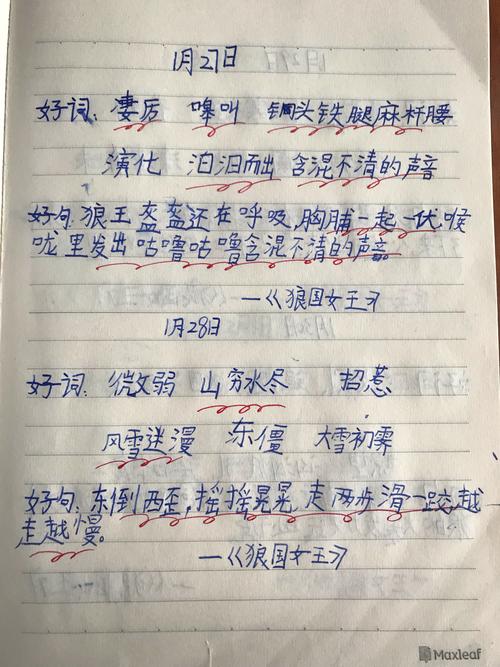 1月27日
好词：凄厉 嗥叫 铜头铁腿麻杆腰
演化 汩汩而出 含混不清的声音
好句：狼王盔盔还在呼吸，胸脯一起一伏，喉
咙里发出咕噜咕噜含混不清的声音。
—《狼国女王》
1月28日
好词：微弱 山穷水尽 招惹
风雪迷漫 东僵 大雪初霁
好句：东倒西歪，摇摇晃晃，走两步滑一跤越
走越慢。
—《狼国女王》
Maxleaf